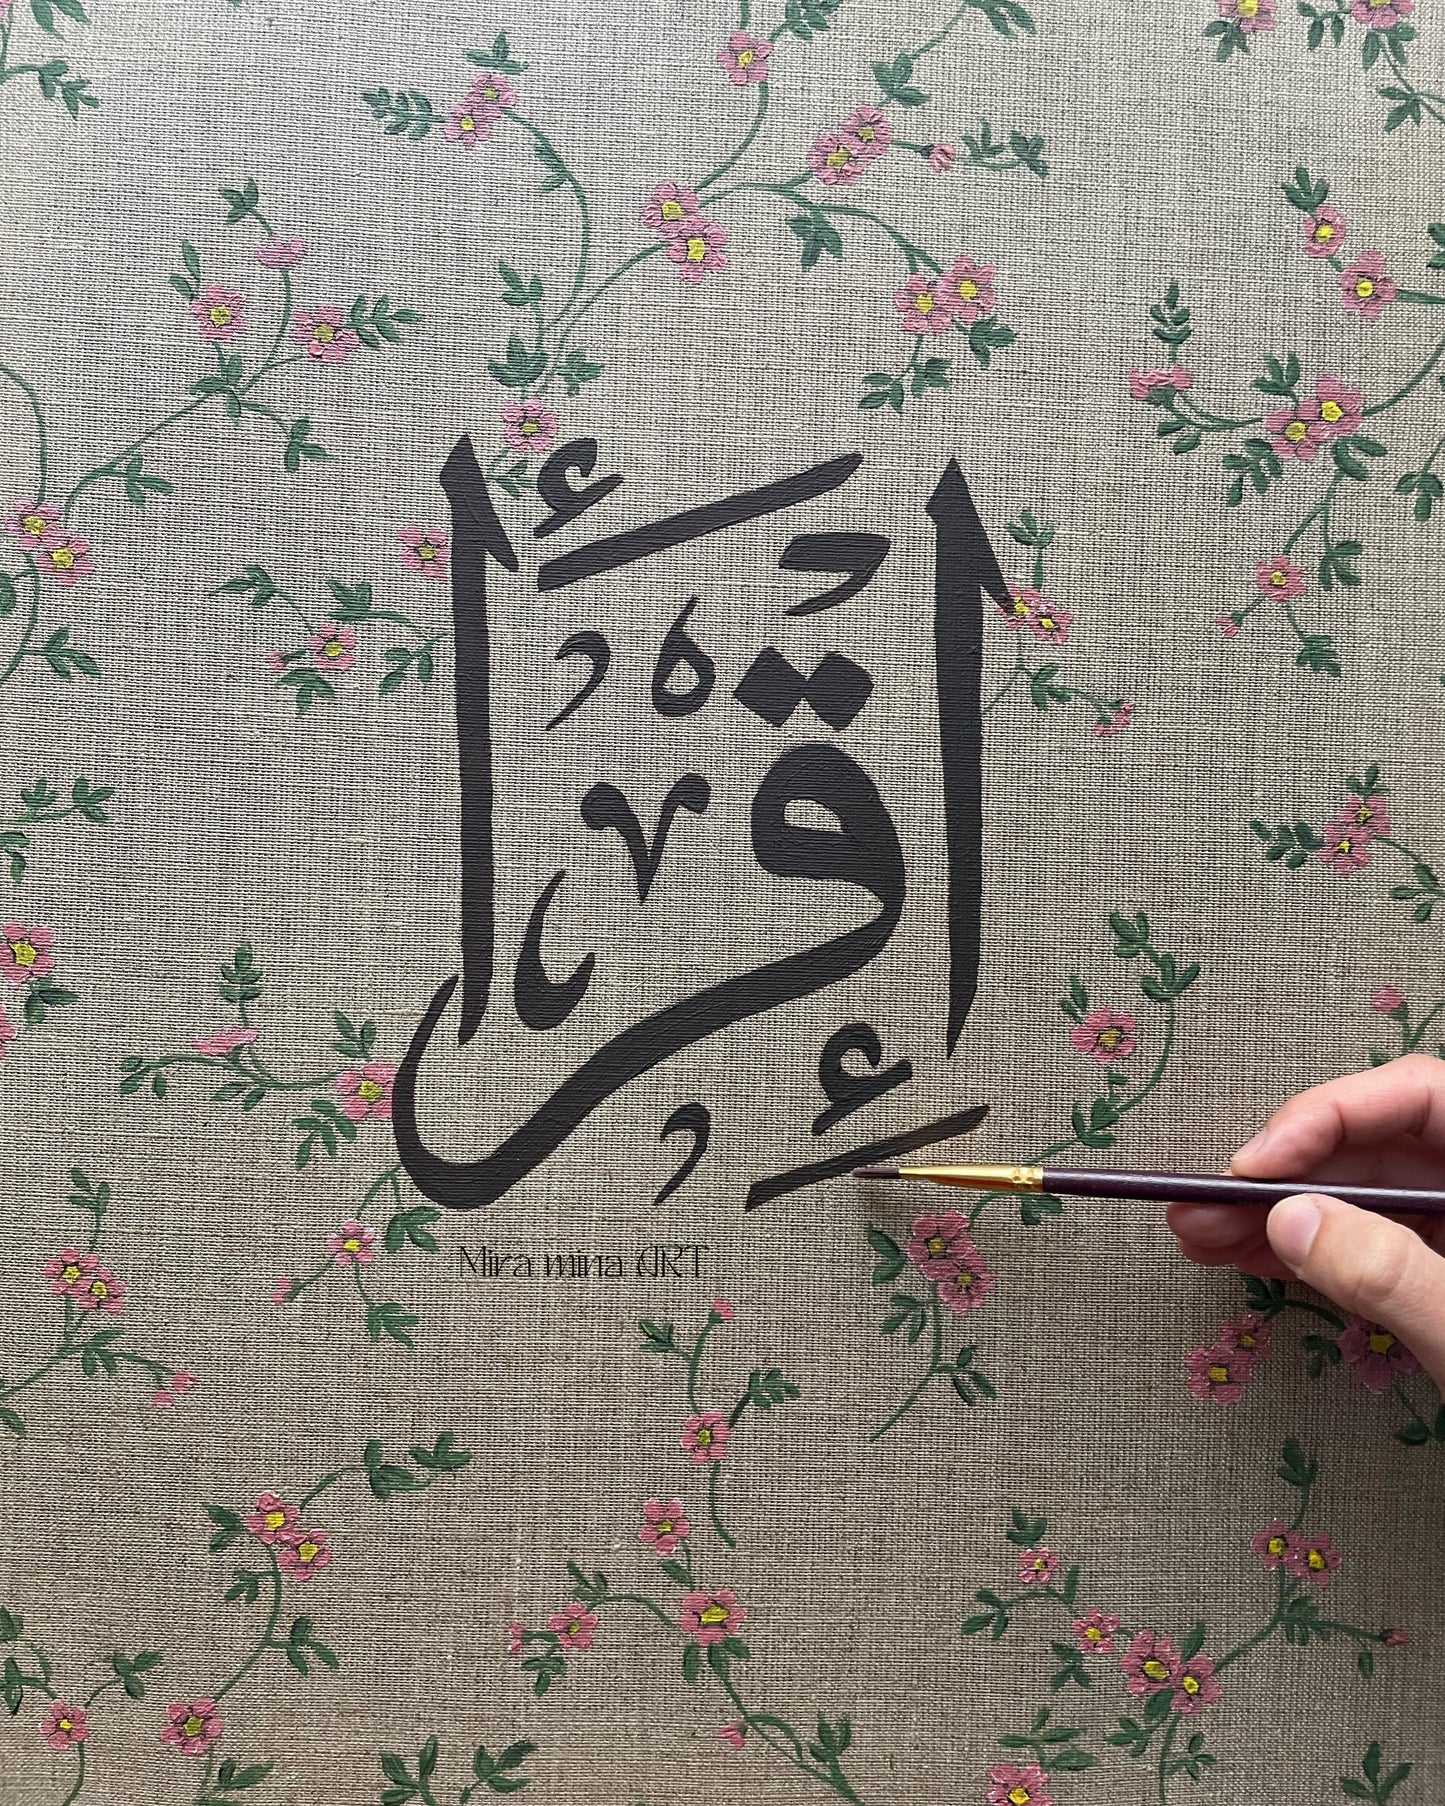 إقرأ
Mira mina ART